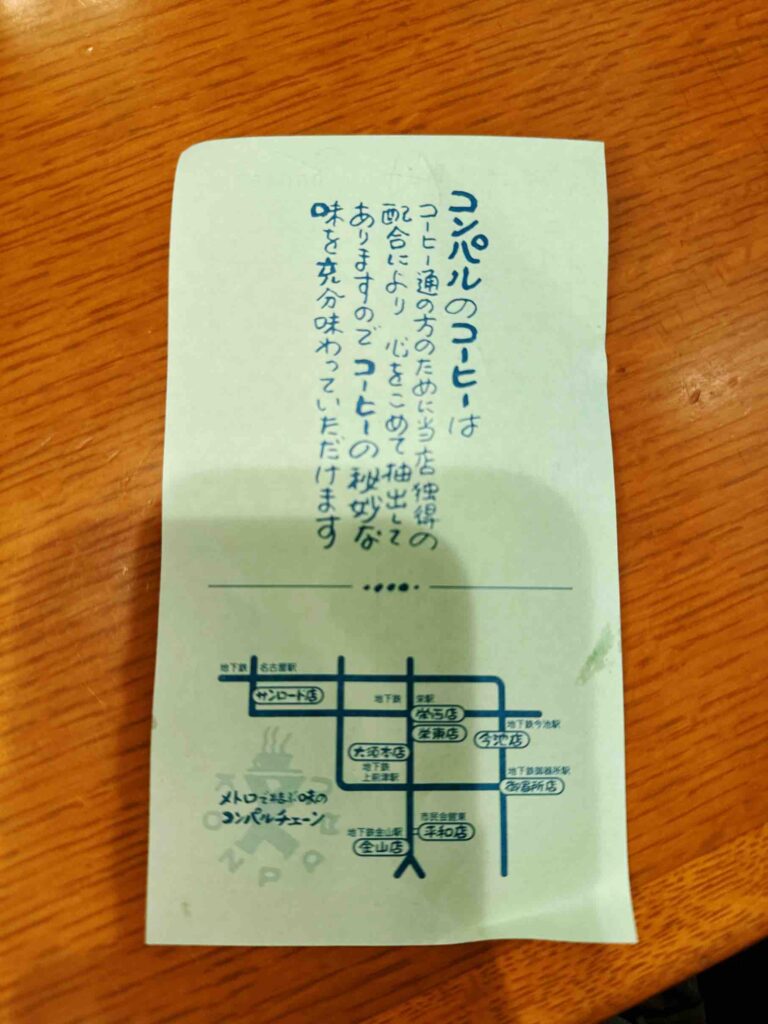 コンパルのコーヒーは
コーヒー通の方のために当店独得の
配合により 心をこめて抽出して
ありますので コーヒーの秘妙な
味を充分味わっていただけます
地下鉄 名古屋駅
サンロード店
地下鉄 栄駅
栄西店
栄東店
地下鉄今池駅
今池店
大須本店
地下鉄
上前津駅
地下鉄御器所駅
御器所店
メトロで結ぶ味の
コンパルチェーン
市民会館東
平和店
地下鉄金山駅
金山店